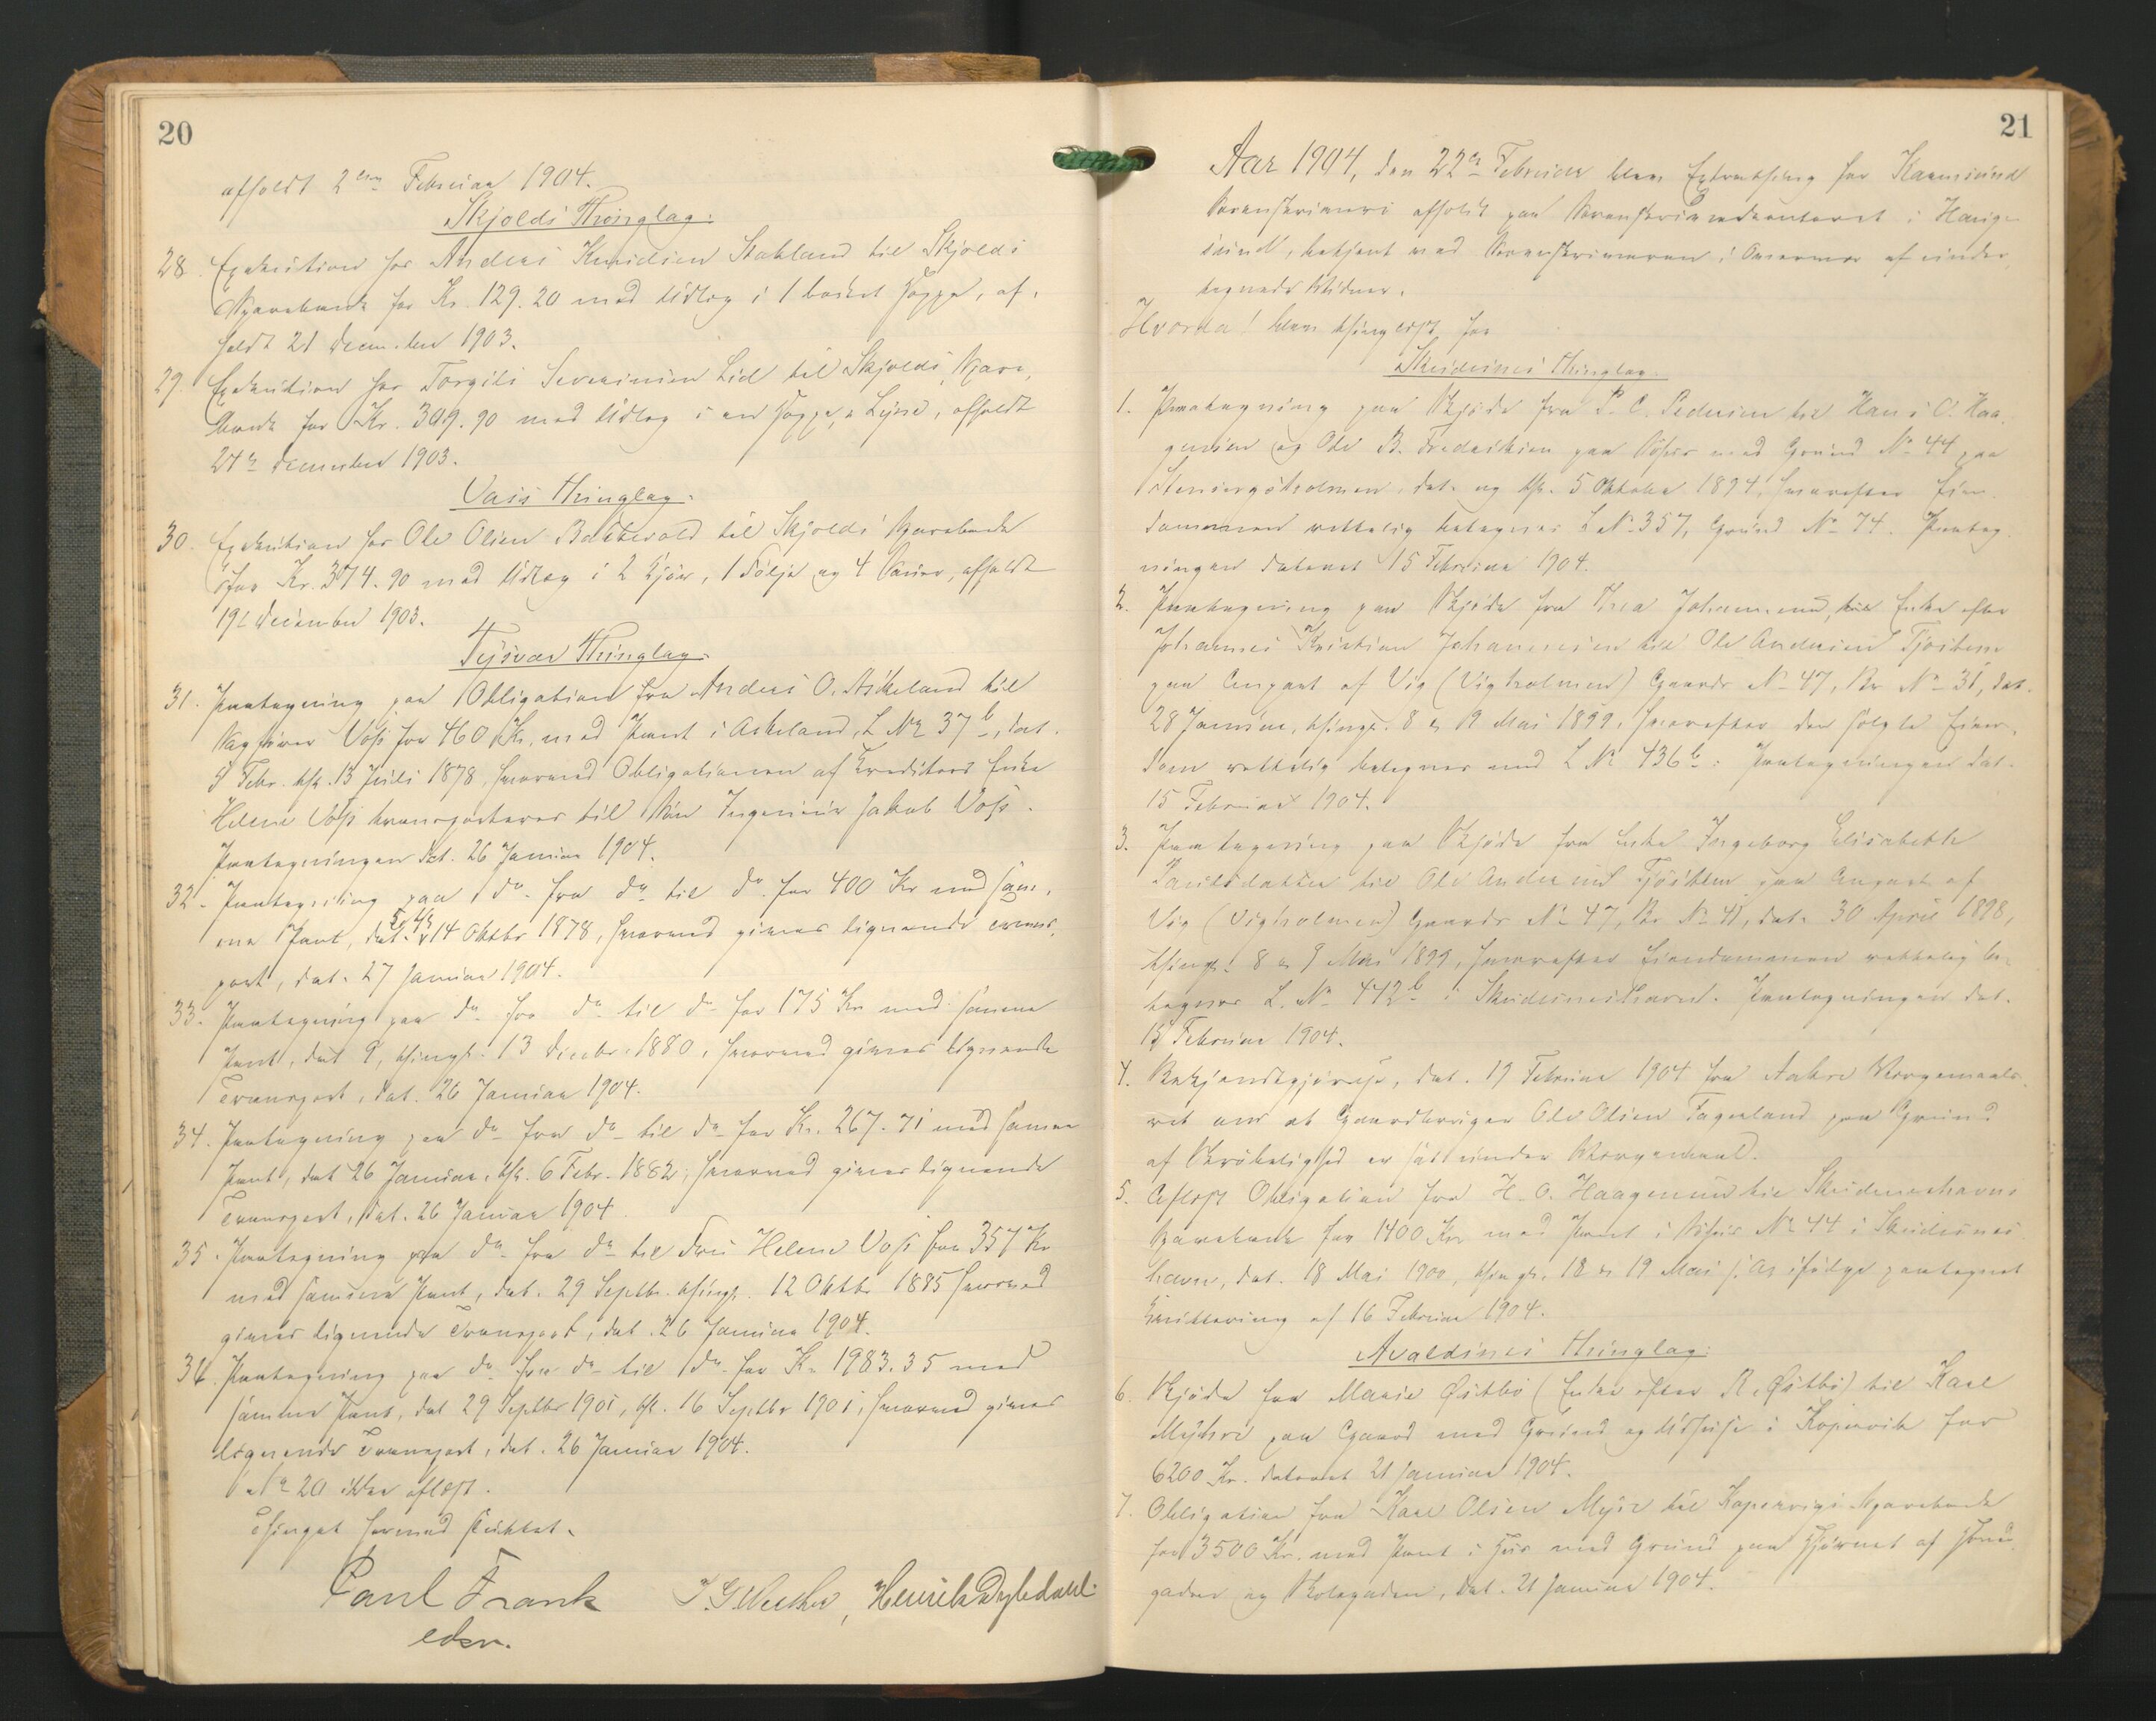 20
afholdt 2den Februar 1904.
Skjolds Thinglag:
28. Exekution hos Anders Knudsen Stakland til Skjolds
Sparebank for Kr. 129.20 med Udlæg i 1 borket Hoppe, af-
holdt 21 December 1903.
29. Exekution hos Torgils Severinsen Lid til Skjolds Spare-
bank for Kr. 399.90 med Udlæg i en Hoppe, afholdt
24de December 1903.
Vats Thinglag:
30. Exekution hos Ole Olsen Bakkevold til Skjolds Sparebank
for Kr. 374.90 med Udlæg i 2 Kjør, 1 Følje og 4 Sauer, afholdt
19de December 1903.
Tysvær Thinglag:
31. Paategning paa Obligation fra Anders O. Askeland til
Sagfører Voss for 460 Kr. med Pant i Askeland, L No 37b, dat.
5 Febr. thl. 13 Juli 1878, hvorved Obligationen af Kreditors Enke
Helene Voss transporteres til Søn Ingeniør Jakob Voss.
Paategningen dat. 26 Januar 1904.
32. Paategning paa do fra do til do for 400 Kr med sam-
me Pant, dat. 14 Oktbr 1878, hvorved gives lignende Trans-
port, dat. 27 Januar 1904.
33. Paategning paa do fra do til do for 175 Kr med samme
Pant, dat 9, thingl. 13 Decbr. 1880, hvorved gives lignende
Transport, dat. 26 Januar 1904.
34. Paategning paa do fra do til do for Kr. 267.71 med samme
Pant, dat 26 Januar, thl. 6 Febr. 1882, hvorved gives lignende
Transport, dat. 26 Januar 1904.
35. Paategning paa do fra do til Fru Helene Voss for 357 Kr
med samme Pant, dat. 29 Septbr. thingl. 12 Oktbr 1885 hvorved
gives lignende Transport, dat. 26 Januar 1904.
36. Paategning paa do fra do til do for Kr 1983.35 med
samme Pant, dat 29 Septbr 1901, thl. 16 Septbr 1901, hvorved gives
lignende Transport, dat. 26 Januar 1904.
No 20 ikke aflæst.
Thinget hermed sluttet.
Paul Frank
edsv.
Henrik Dybdahl
21
Aar 1904, den 22de Februar blev Extrathing for Karmsund
Sorenskriveri afholdt paa Sorenskriverkontoret i Hauge-
sund, betjent ved Sorenskriveren i Overvær af under-
tegnede Vidner.
Hvorda! blev thinglæst for
Skudesnes Thinglag.
1. Paategning paa Skjøde fra P. C. Pedersen til Hans O. Haa-
gensen og Ole B. Fredriksen paa Søhus med Grund No 44 paa
Steiningsholmen, dat. og thl. 5 Oktober 1894, hvorefter Eien-
dommen rettelig betegnes L No 357, Grund No 74. Paateg-
ningen dateret 15 Februar 1904.
2. Paategning paa Skjøde fra Thea Johannesen, Enke efter
Johannes Kristian Johannesen til Ole Andersen Tjøsten
paa Anpart af Vig (Vigholmen) Gaards No 47, Br No 31, dat.
28 Januar, thingl. 8 & 9 Mai 1899, hvorefter den solgte Eien-
dom rettelig betegnes med L No 436b. Paategningen dat.
15 Februar 1904.
3. Paategning paa Skjøde fra Enke Ingeborg Elisabeth
Paulsdatter til Ole Andersen Tjøsten paa Anpart af
Vig (Vigholmen) Gaards No 47, Br No 41, dat. 30 April 1898,
thingl. 8 & 9 Mai 1899, hvorefter Eiendommen rettelig be-
tegnes L. No 472b i Skudesneshavn. Paategningen dat.
15 Februar 1904.
4. Bekjendtgjørelse, dat. 19 Februar 1904 fra Aakre Værgemaals-
ret om at Gaardbruger Ole Olsen Fagerland paa Grund
af Skrøbelighed er sat under Værgemaal.
5. Aflæst Obligation fra H. O. Haagensen til Skudeneshavns
Sparebank for 1400 Kr med Pant i Søhus No 44 i Skudesnes-
havn, dat. 18 Mai 1900, thingl. 18 & 19 Mai s. A. ifølge paategnet
Kvittering af 16 Februar 1904.
Avaldsnes Thinglag:
6. Skjøde fra Marie Østbø (Enke efter R. Østbø) til Karl
Myhre paa Gaard med Grund og Udhuse i Kopervik for
6200 Kr. dateret 21 Januar 1904.
7. Obligation fra Karl Olsen Myhre til Kopervigs Sparebank
for 3500 Kr. med Pant i Hus med Grund paa Hjørnet af
gaden og Skolegaden, dat. 21 Januar 1904.